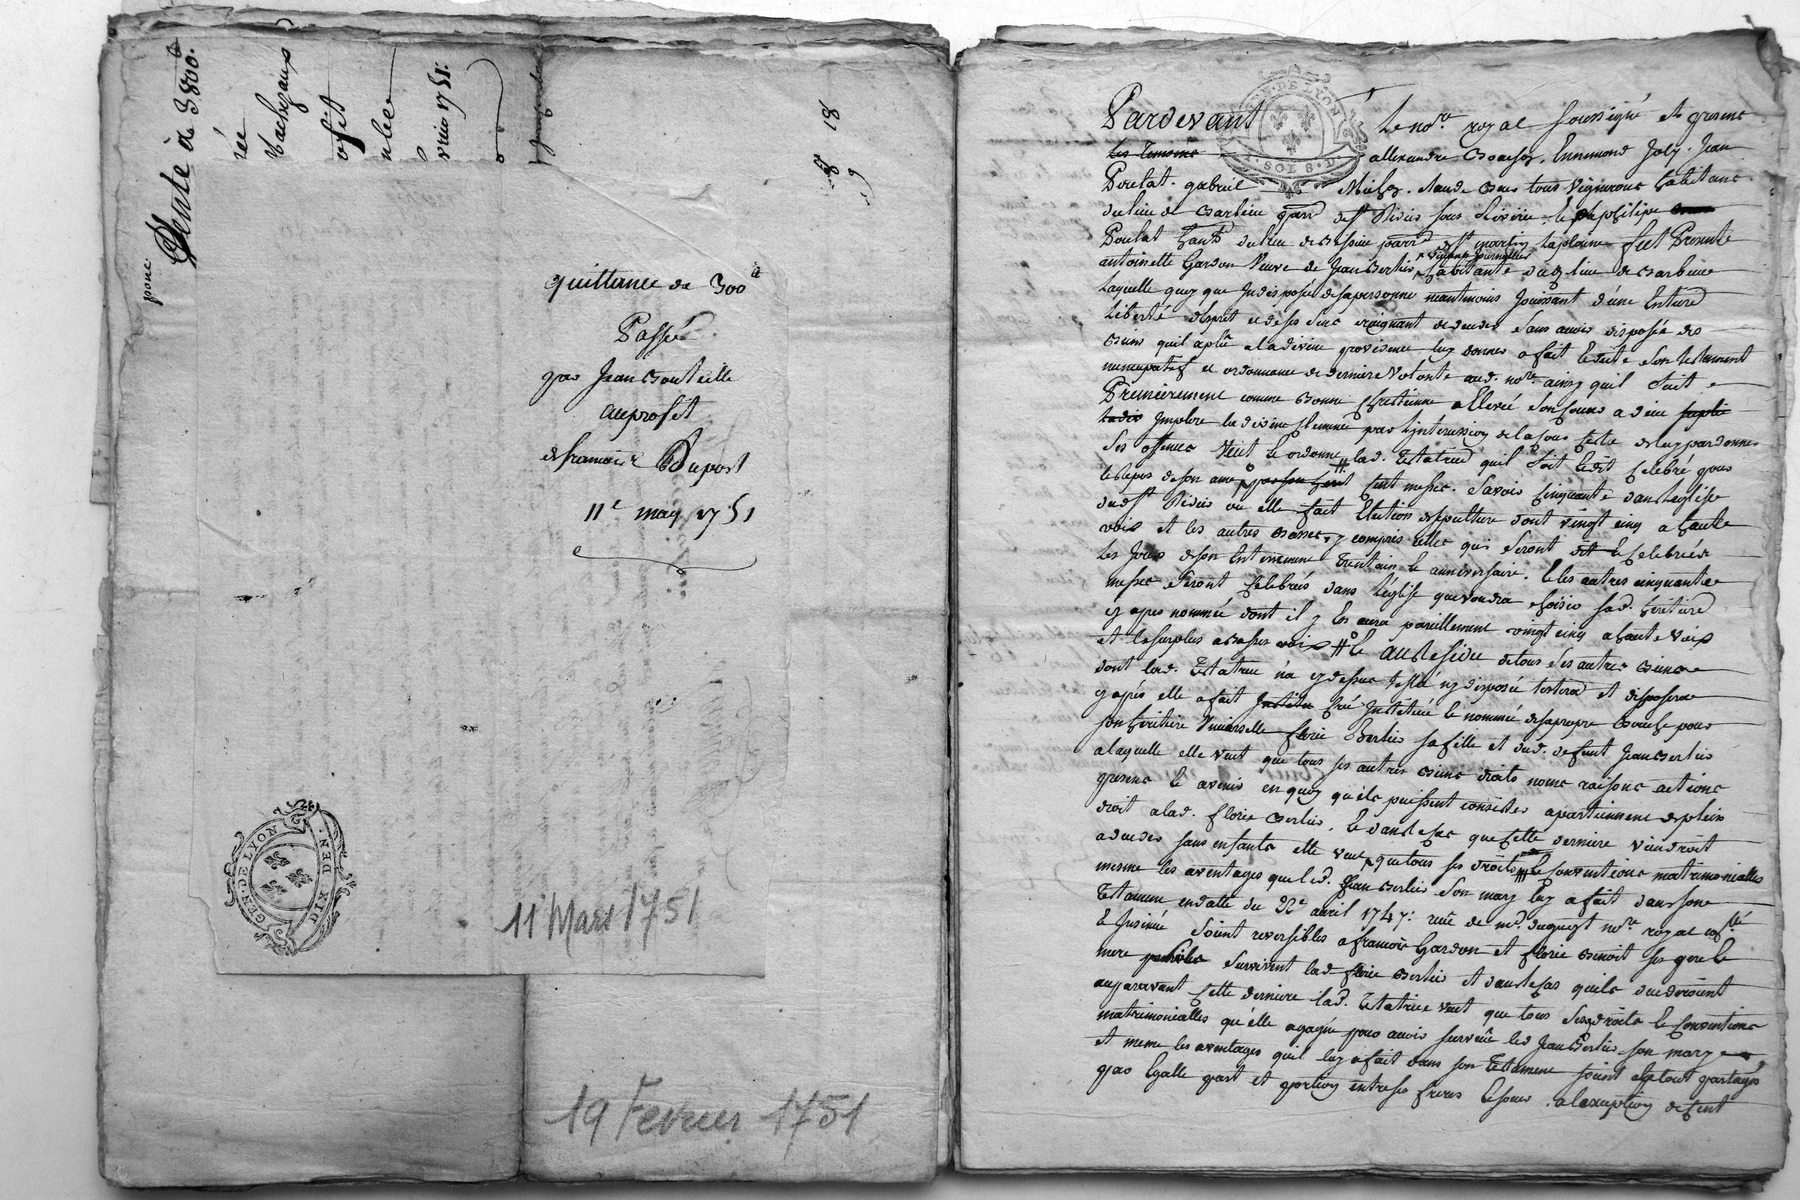 pour
Vente à de 3800#
rée
ofit
nlee
vrier 1751:
18
8
9
quittance de 300#
Passée
par Jean Bouteille
au profit
de francois Duport
11e may 1751
GEN·DE LYON
DIX DEN·
11 Mars 1751
19 Fevrier 1751
GEN·DE LYON
SOL 8·D·
Pardevant Le nore royal soussigné et presens
les temoins allexandre Ennemond Joly. Jean
Poulat. gabriel tous vignerons habitans
du lieu de Barbieu parr de st Didier sous Riverie et philipe
Poulat habt du lieu de parr de st martin la plaine fut Presente
antoinette Gardon Veuve de Jean Berlier vivant Journallier habitante dud lieu de Barbieu
Laquelle quoy que Indisposée de sa personne neantmoins Jouissant d'une Entiere
Liberté d'esprit et de ses sens craignant de deceder sans avoir disposée des
biens quil a plû a la divine providence luy donner a fait Son testament
nuncupatif et ordonnance de derniere volonté aud. nore. ainsy quil suit
Premierement comme Bonne Chretienne a Elevé son coeur a dieu
Implore la divine Clemence par l'intercession de la cour celeste de luy pardonner
ses offences Veut Et ordonne lad. Testatrice quil soit Celebré pour
le repos de son ame cent messes. Savoir cinquante dans leglise
dud st Didier où elle fait Election de sepulture dont vingt cinq a haute
voix et les autres Basses, y compris celles qui seront Celebrées
les Jours de son Enterrement Trentain Et anniversaire. Et les autres cinquante
messes seront Celebrées dans l'eglise que voudra choisir sad. heritiere
cy apres nommée dont il y En aura pareillement vingt cinq a haute voix
et le surplus a Basses voix Et au Residu de tous ses autres Biens
dont lad. Testatrice n'a cy dessus testé ny disposée testera et disposera
cy après elle a fait Créé Institué Et nommé de sa propre Bouche pour
son heritiere Universelle florie Berlier sa fille et dud. defunt Jean Berlier
a laquelle elle veut que tous ses autres Biens droits noms raisons actions
presens Et avenir en quoy qu'ils puissent consister apartiennent de plein
droit a lad. florie Berlier. Et dans le cas que cette derniere viendroit
a deceder sans enfants elle veut que tous ses droits Et conventions matrimonialles
mesme les aventages que led. Jean Berlier son mary luy a fait dans son
Testament en datte du 22e avril 1747: receu de me. duguest nore royal
Et Insinué soient reversibles a francois Gardon et florie Benoit ses pere Et
mere survivent lad florie Berlier et dans le cas quils decederoient
auparavant cette derniere lad. Testatrice veut que tous ses droits Et conventions
matrimonialles qu'elle a gagné pour avoir survécu led Jean Berlier son mary
et meme les aventages quil luy a fait dans son Testament soient Le tout partagés
par Egalle part et portion entre ses freres Et soeurs. a lexception de cent